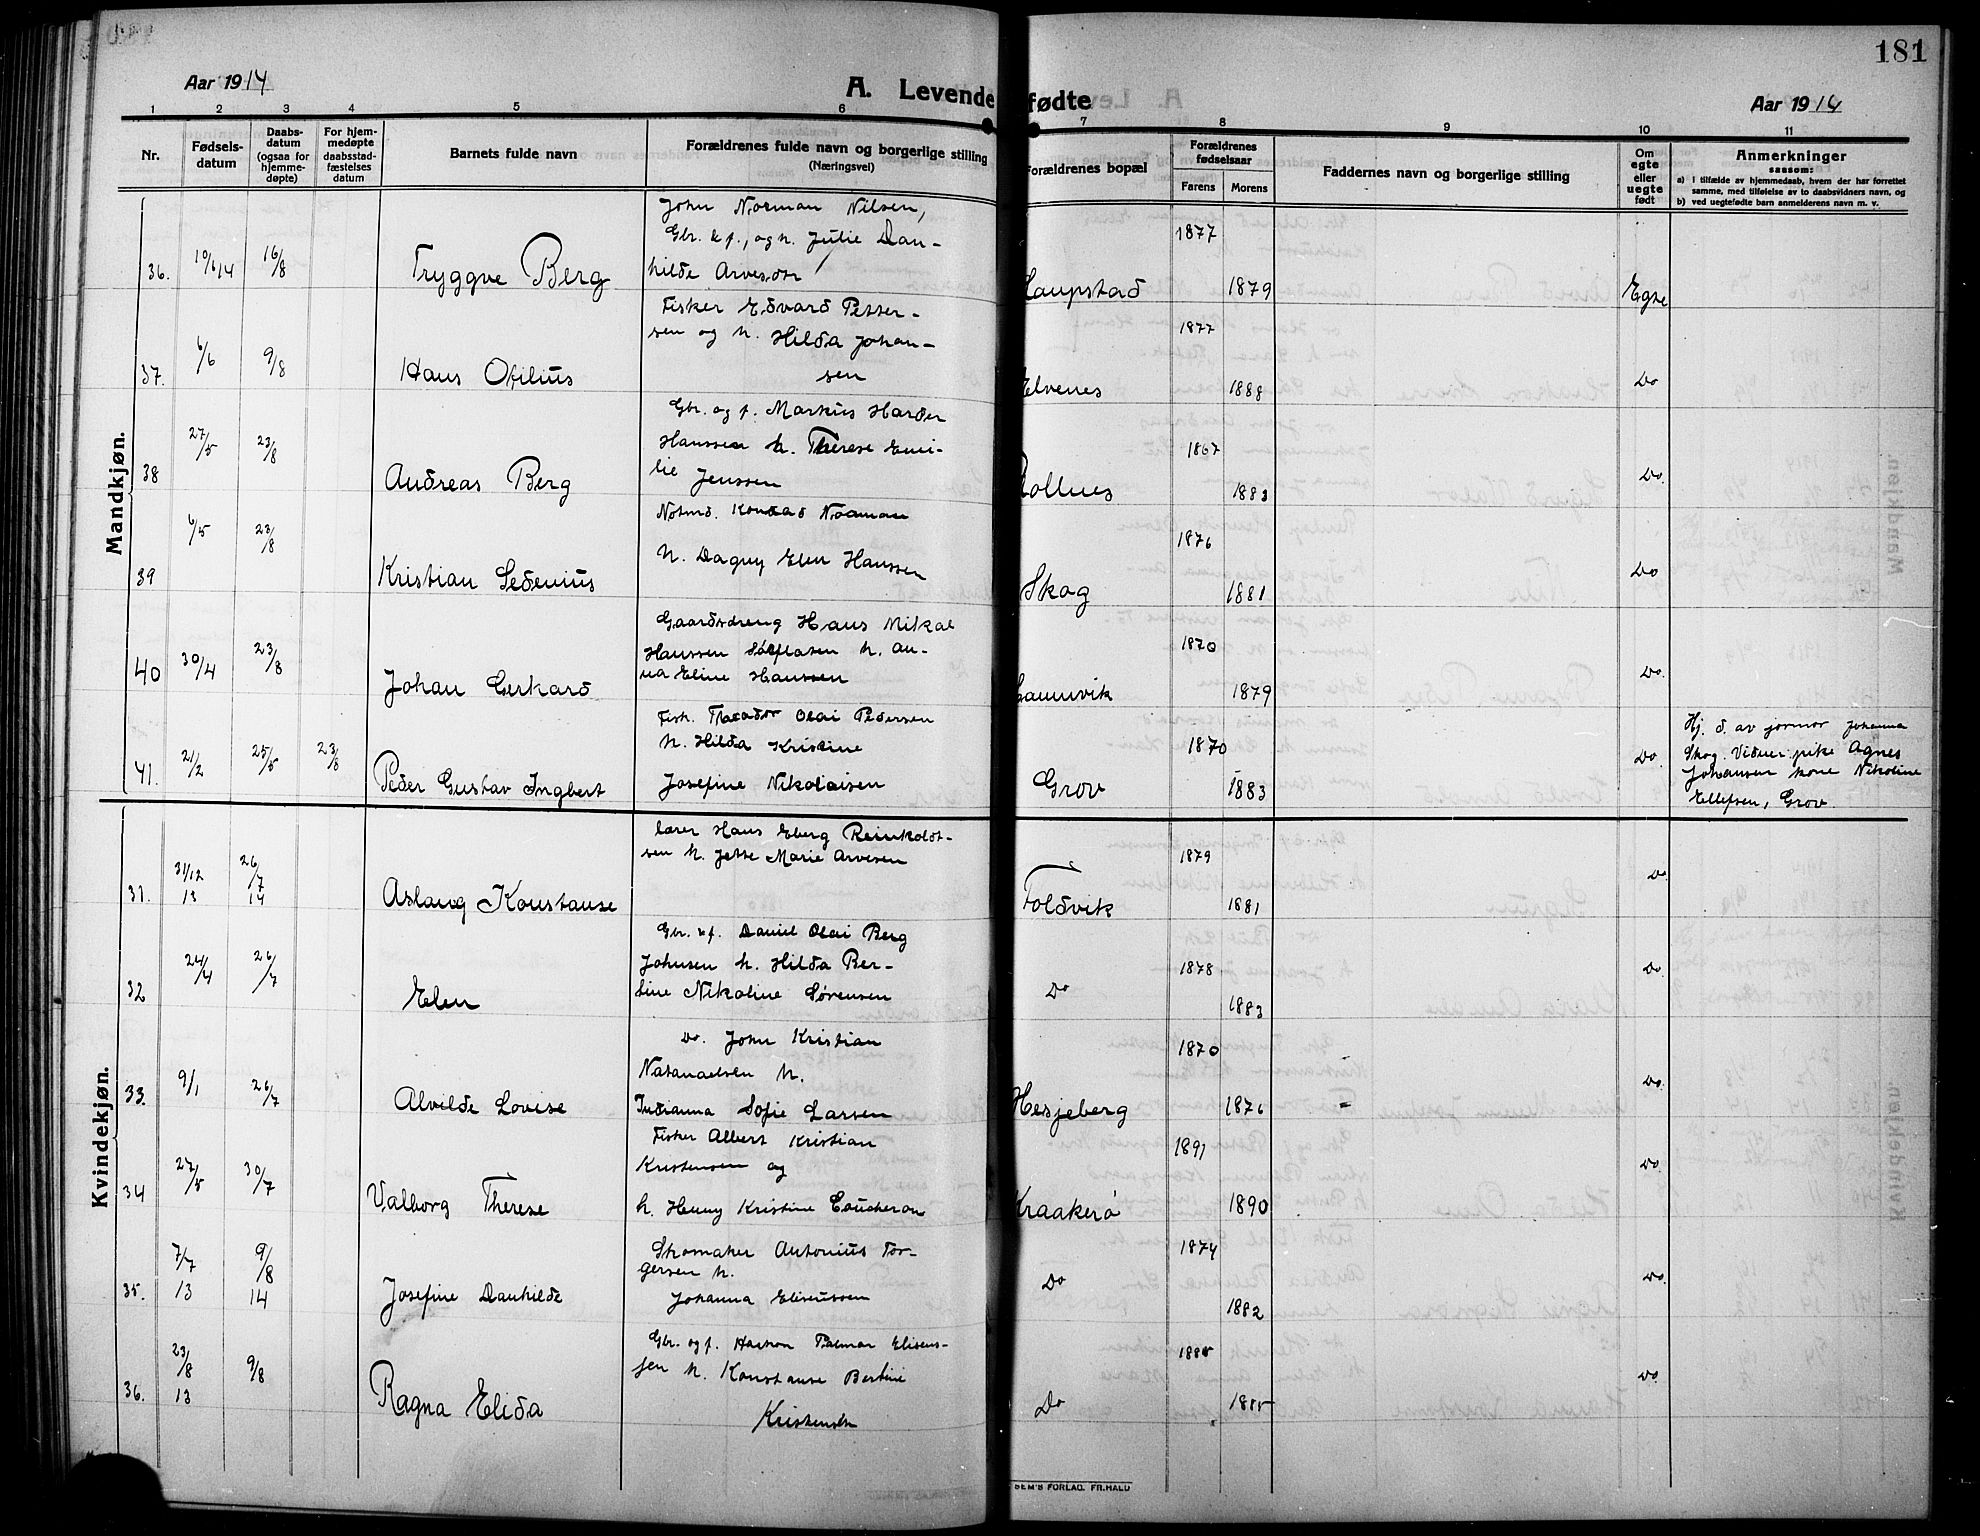 181
Aar 1914
A. Levende fødte
Aar 1914
1 2 3 4 5 6 7 8 9 10 11
Nr.
Fødsels-
datum
Daabs-
datum
(ogsaa for
hjemme-
døpte)
For hjem-
medøpte
daabsstad-
fæstelses
datum
Barnets fulde navn
Forældrenes fulde navn og borgerlige stilling
(Næringsvei)
Forældrenes bopæl
Forældrenes
fødselsaar
Farens Morens
Faddernes navn og borgerlige stilling
Om
egte
eller
uegte
født
Anmerkninger
saasom:
a) i tilfælde av hjemmedaab, hvem der har forrettet
samme, med tilføielse av to daabsvidners navn, og
b) ved uegtefødte barn anmelderens navn m. v.
Mandkjøn.
36. 10/6 14 16/8 Tryggve Berg
John Norman Nilsen,
Gbr. & f., og h. Julie Dan-
hilde Arvesdtr
Laupstad 1877 1879 Egte
37. 6/6 9/8 Hans Otilius
Fisker Edvard Petter-
sen og h. Hilda Johan-
sen
Elvenes 1877 1888 Do
38 27/5 23/8 Andreas Berg
Gbr. og f. Markus Harder
Hanssen h. Therese Emi-
lie Jenssen
Rollnes 1867 1883 Do.
39 6/5 23/8 Kristian Sedenius
Konrad Norman
h. Dagny Elen Hanssen
Skog 1876 1881 Do
40 30/4 23/8 Johan Gerhard
Gaardsdreng Hans Mikal
Hanssen h. An-
na Eline Hanssen
1870 1879 Do.
41. 21/2 25/5 23/8 Peder Gustav Ingbert
Fisk. Theodor Olai Pedersen
h. Hilda Kristine
Josefine Nikolaisen
Grov 1870 1883 Do.
Hj. d. av jormor Johanna
Skog. Vidner pike Agnes
Johansen kone Nikoline
Ellefsen, Grov.
Kvindekjøn.
31. 31/12 13 26/7 14 Aslaug Konstanse
lærer Hans Eberg Reinholdt-
sen h. Jette Marie Arvesen
Foldvik 1879 1881 Do.
32 24/4 26/7 Elen
Gbr. & f. Daniel Olai Berg
Johnsen h. Hilda Ber-
tine Nikoline Sørensen
Do 1878 1883 Do.
33. 9/1 26/7 Alvilde Lovise
Do. John Kristian
Natanaelsen h.
Indianna Sofie Larsen
Hesjeberg 1870 1876 Do.
34 27/5 30/7 Valborg Therese
Fisker Albert Kristian
Kristensen og
h. Henny Kristine Coucheron
Kraakerø 1891 1890 Do.
35. 7/7 13 9/8 14 Josefine Danhilde
Skomaker Antonius Tor-
gersen h.
Johanna Eliseussen
Do 1874 1882 Do.
36. 23/8 13 9/8 Ragna Elida
Gbr. og f. Hakon Palmar Eliseus-
sen h. Konstanse Bertine
Do 1885 1885 Do.
FORLAG. FR.HALD